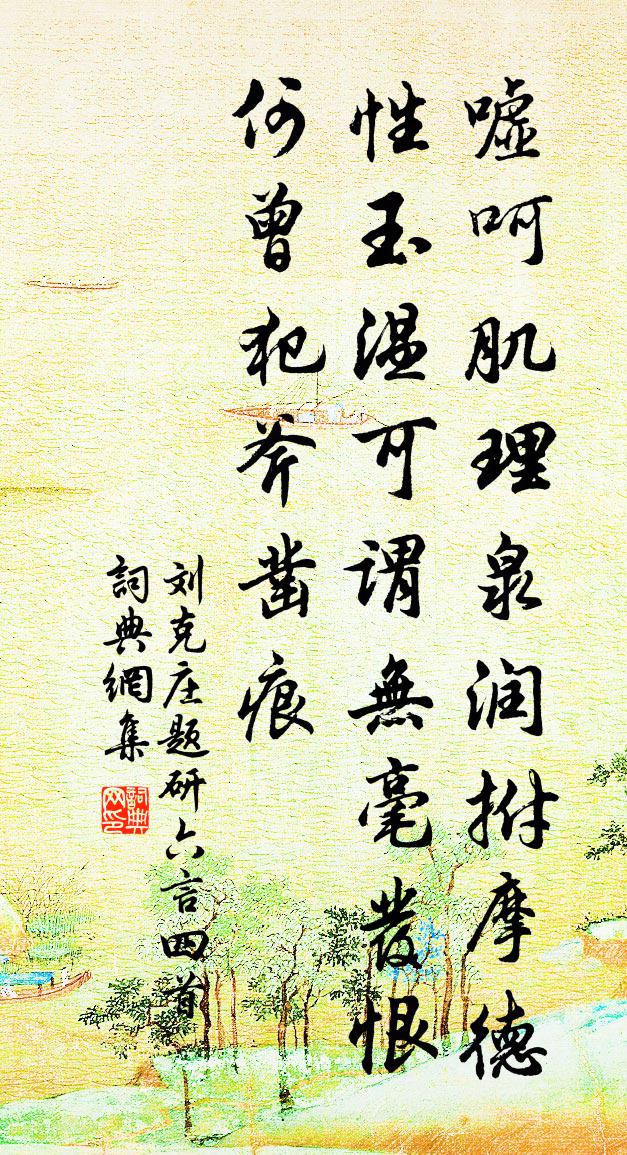 嘘呵肌理泉润拊摩德
性玉温可谓無毫發恨
何曾犯斧凿痕
刘克庄题研六言四首
詞典網集
詞典网印